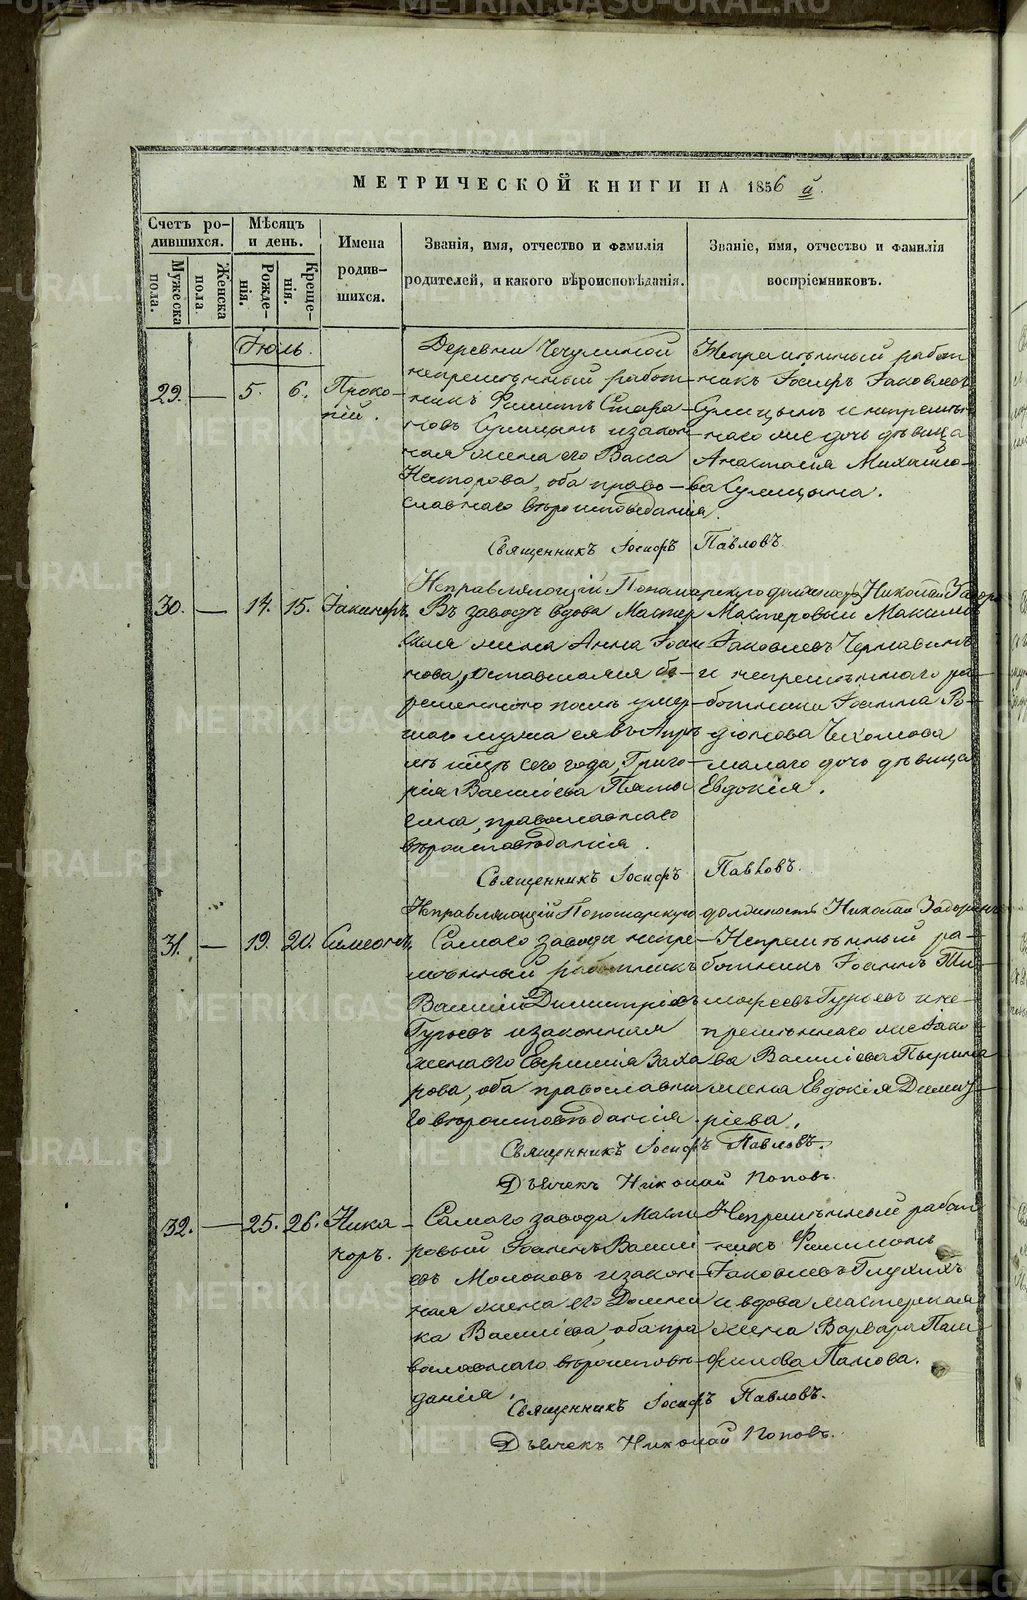 МЕТРИЧЕСКОЙ КНИГИ НА 1856 й.
Счетъ ро-
дившихся.
Мужеска
пола.
Женска
пола
Мѣсяцъ
и день.
Рожде-
нія.
Креще-
нія.
Имена
родив-
шихся.
Званія, имя, отчество и фамилія
родителей, и какого вѣроисповѣданія.
Званіе, имя, отчество и фамилія
воспріемниковъ.
Іюль.
29. — 5. 6. Проко-
пій.
Деревни
непремѣнный работ-
никъ
Сулицынъ и закон-
ная жена его Васса
Несторова, оба право-
славнаго вѣроисповѣданія.
Непремѣнный работ
никъ Іосифъ Іаковлевъ
Сулицынъ и непремѣн-
наго дочь дѣвица
Анастасія Михайло-
ва Сулицына.
Священникъ Іосифъ Павловъ.
Исправляющій Пономарскую должность Николай
30. — 14. 15. Іакинфъ.
Въ заводѣ вдова Мастер
ская жена Анна Іоан
нова, оставшаяся бе-
ременною послѣ умер-
шаго мужа ея въ Апрѣ
лѣ мцѣ сего года, Григо-
рія Василіева
православнаго
вѣроисповѣданія.
Мастеровый Максимъ
Іаковлевъ Чернавинъ
и непремѣннаго ра-
ботника Іоанна Ро-
діонова
дочь дѣвица
Евдокія.
Священникъ Іосифъ Павловъ.
Исправляющій Пономарскую должность Николай
31. — 19. 20. Симеонъ.
Самаго завода непре-
мѣнный работникъ
Василій Димитріевъ
Гурьевъ и законная
жена его Евфимія Заха
рова, оба православна
го вѣроисповѣданія.
Непремѣнный ра-
ботникъ Іоаннъ Ти-
мофеевъ Гурьевъ и не-
премѣннаго
Василіева
жена Евдокія Димит-
ріева.
Священникъ Іосифъ Павловъ.
Дьячекъ Николай Поповъ.
32. — 25. 26. Ника-
норъ.
Самаго завода Масте
ровый Іоаннъ Василі
евъ Молоковъ и закон-
ная жена его Домни
ка Василіева, оба пра
вославнаго вѣроисповѣ-
данія.
Непремѣнный работ
никъ Филимонъ
Іаковлевъ Глухихъ
и вдова мастерская
жена Варвара Пан
филова Панова.
Священникъ Іосифъ Павловъ.
Дьячекъ Николай Поповъ.
METRIKI.GASO-URAL.RU